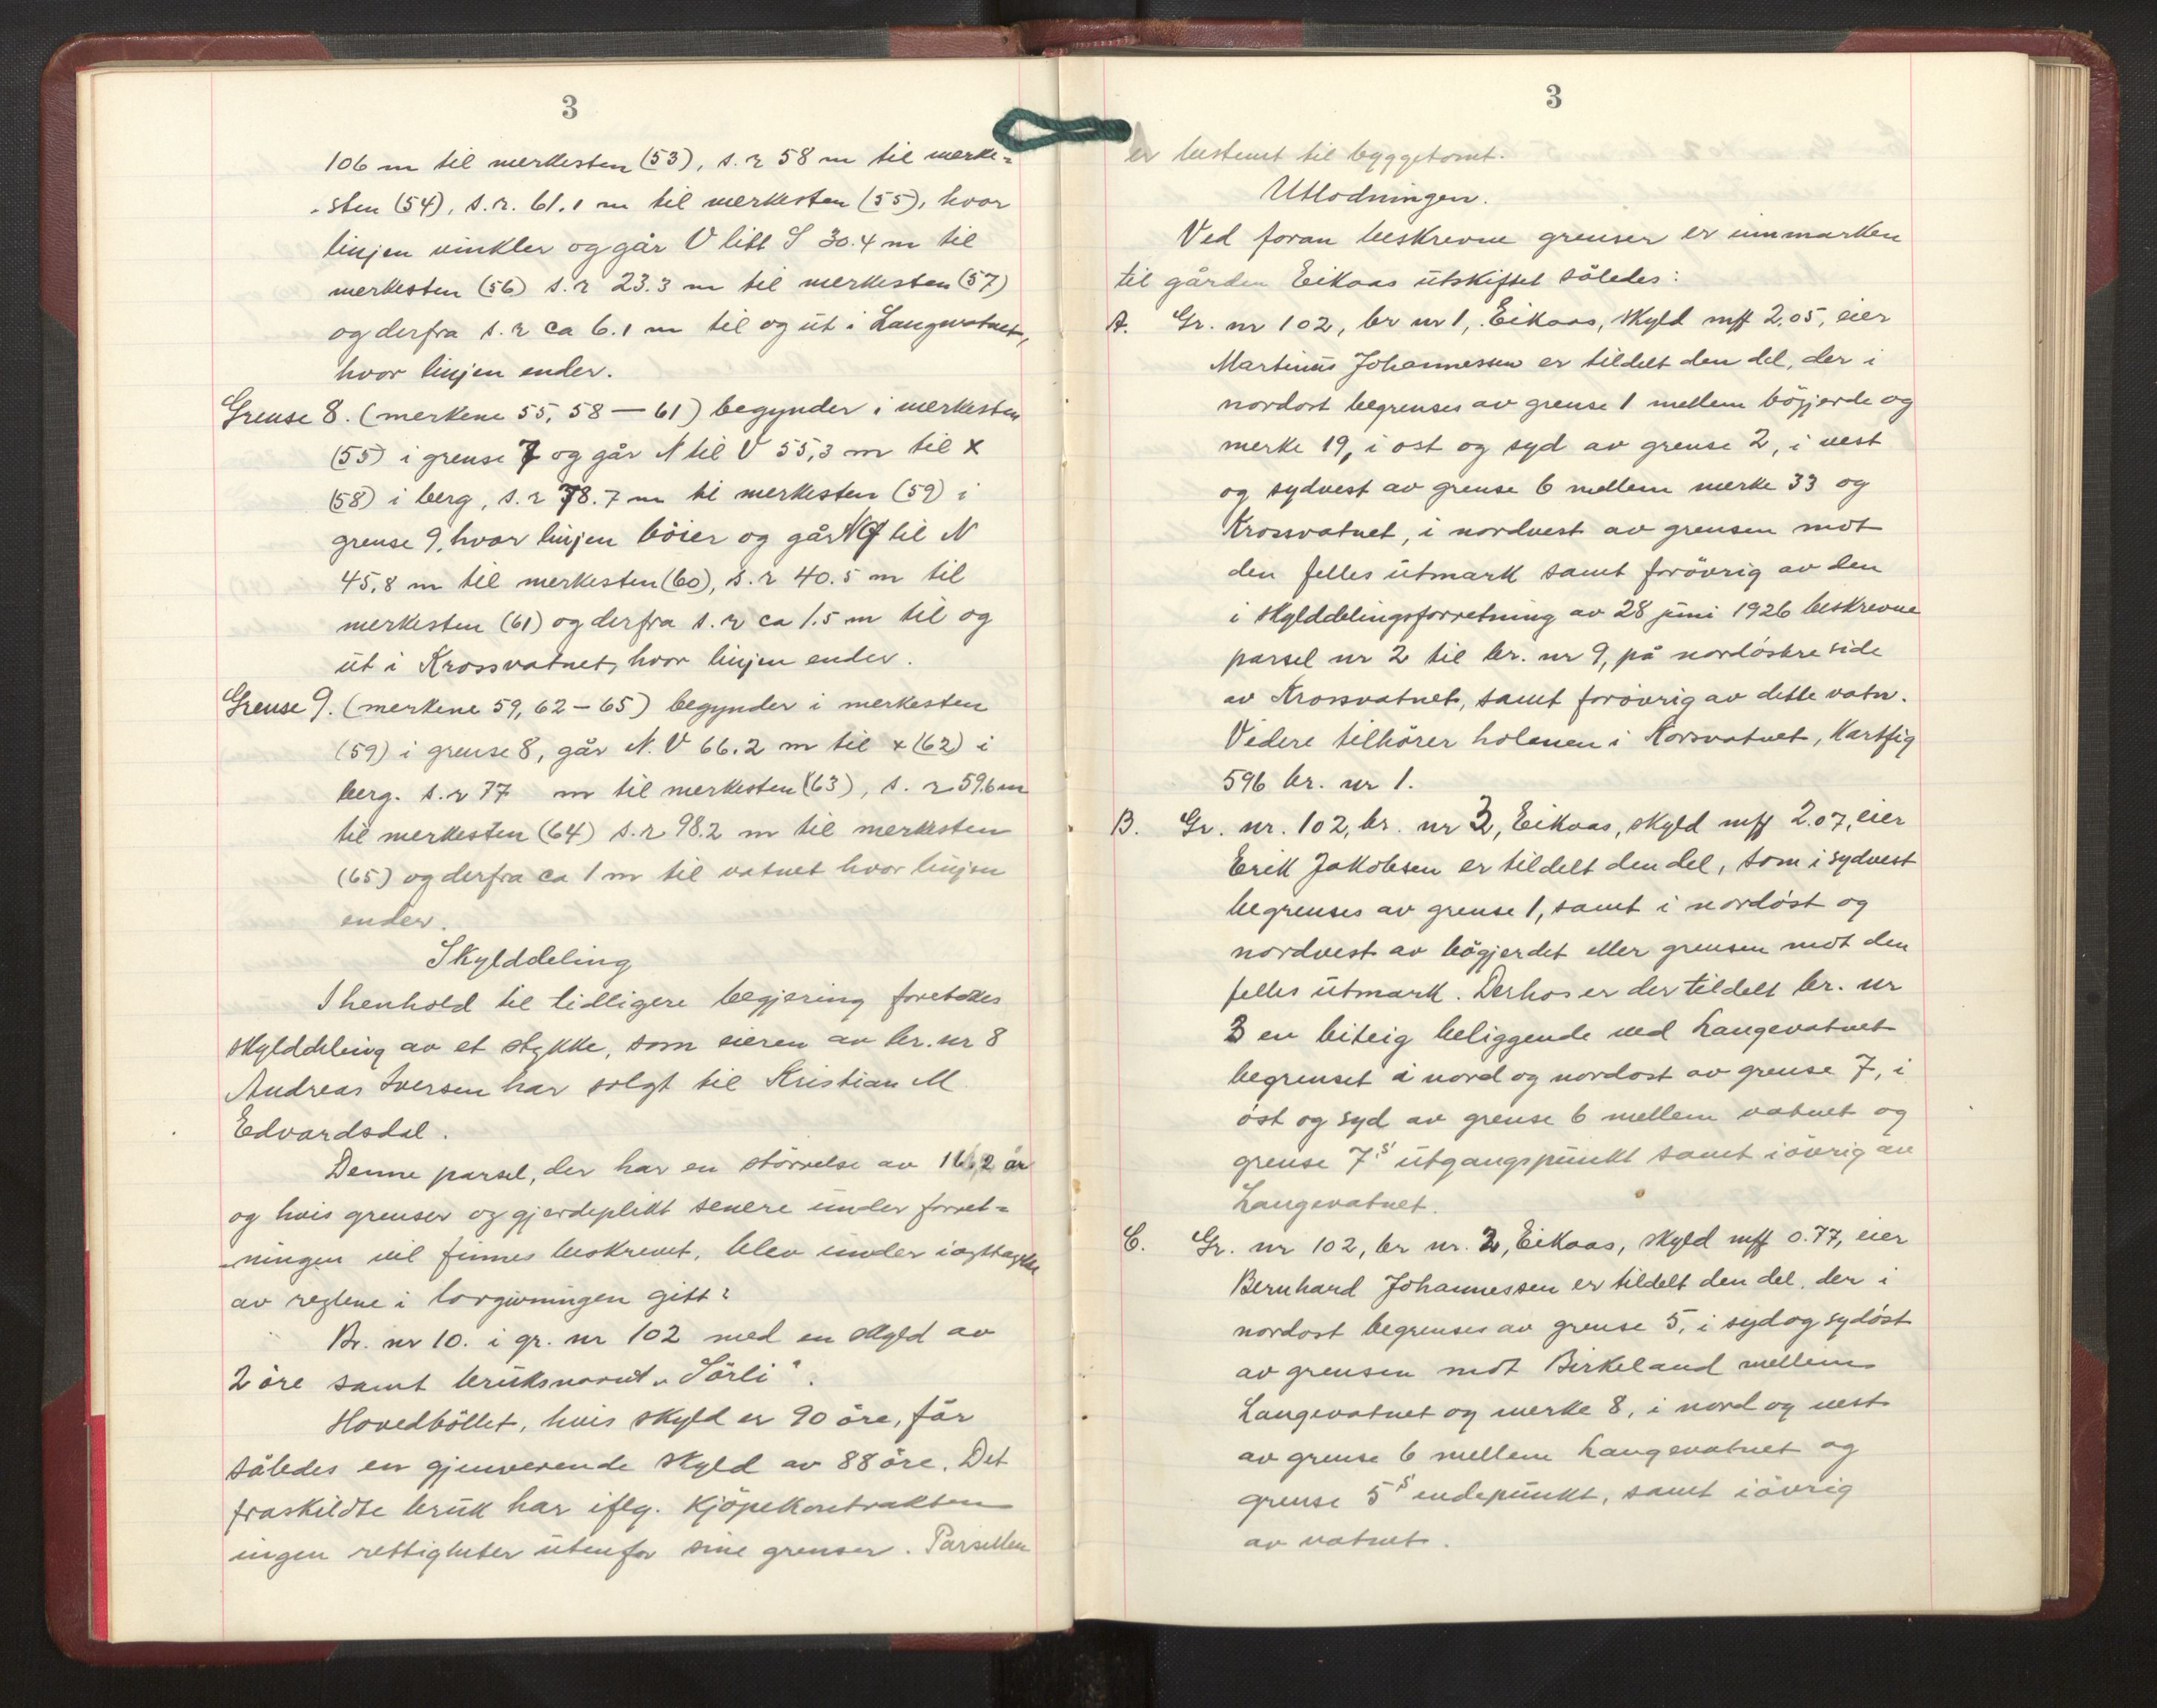 3
106 m til merkesten (53), s. r 58 m til merke=
-sten (54), s. r. 61.1 m til merkesten (55), hvor
linjen vinkler og går V litt S 30.4 m til
merkesten (56) s. r 23.3 m til merkesten (57)
og derfra s. r ca 6.1 m til og ut i Langvatnet,
hvor linjen ender.
Grense 8. (merkene 55, 58 — 61) begynder i merkesten
(55) i grense 7 og går N til V 55,3 m til x
(58) i berg, s. r 78.7 m til merkesten (59) i
grense 9, hvor linjen böier og går NØ til N
45,8 m til merkesten (60), s. r 40.5 m til
merkesten (61) og derfra s. r ca 1.5 m til og
ut i Krossvatnet, hvor linjen ender.
Grense 9. (merkene 59, 62 – 65) begynder i merkesten
(59) i grense 8, går N. V 66.2 m til x (62) i
berg. s. r 77 m til merkesten (63), s. r 59.6 m
til merkesten (64) s. r 98.2 m til merkesten
(65) og derfra ca 1 m til vatnet hvor linjen
ender.
Skylddeling
I henhold til tidligere begjering foretokes
skylddeling av et stykke, som eieren av br. nr 8
Andreas Iversen har solgt til Kristian M
Edvardsdal.
Denne parsel, der har en störrelse av 16,2 ar
og hvis grenser og gjerdeplikt senere under forret=
-ningen vil finnes beskrevet, blev under iagttagelse
av reglene i lovgivningen gitt:
Br. nr 10. i gr. nr 102 med en skyld av
2 öre samt bruksnavnet „Sörli".
Hovedböllet, hvis skyld er 90 öre, får
således en gjenverende skyld av 88 öre. Det
fraskildte bruk har iflg. kjöpekontrakten
ingen rettigheter utenfor sine grenser. Parsellen
3
er bestemt til byggetomt.
Utlodningen.
Ved foran beskrevne grenser er innmarken
til gården Eikaas utskiftet således:
A. Gr. nr 102, br nr 1, Eikaas, skyld mrk 2,05, eier
Martinus Johannessen er tildelt den del, der i
nordost begrenses av grense 1 mellem bögjerde og
merke 19, i ost og syd av grense 2, i vest
og sydvest av grense 6 mellem merke 33 og
Krossvatnet, i nordvest av grensen mot
den felles utmark samt forövrig av den
i skylddelingsforretning av 28 juni 1926 beskrevne
parsel nr 2 til br. nr 9, på nordöstre side
av Krossvatnet, samt forövrig av dette vatn.
Videre tilhörer holmen i Korsvatnet, Kartfig
596 br. nr 1.
B. Gr. nr. 102, br. nr 3, Eikaas, skyld mrk 2.07, eier
Erik Jakobsen er tildelt den del, som i sydvest
begrenses av grense 1, samt i nordöst og
nordvest av bögjerdet eller grensen mot den
felles utmark. Derhos er der tildelt br. nr
3 en biteig beliggende ved Langevatnet
begrenset i nord og nordost av grense 7, i
öst og syd av grense 6 mellem vatnet og
grense 7's utgangspunkt samt iövrig av
Langevatnet.
C. Gr. nr 102, br nr. 2, Eikaas, skyld mrk 0.77, eier
Bernhard Johannessen er tildelt den del, der i
nordost begrenses av grense 5, i syd og sydöst
av grensen mot Birkeland mellem
Langevatnet og merke 8, i nord og vest
av grense 6 mellem Langevatnet og
grense 5's endepunkt, samt iövrig
av vatnet.